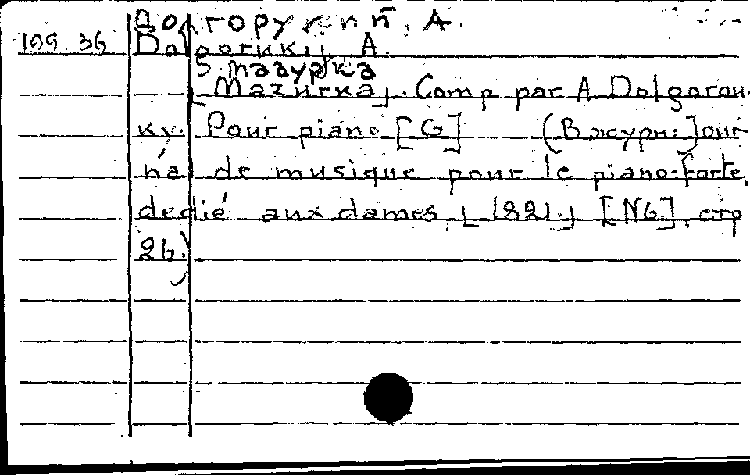 Долгорукий, А.
109 36 Dolgorukij A.
Мазурка
[Mazurka]. Comp par A Dolgorou-
ky. Pour piano [G] (В журн: Jour-
nal de musique pour le piano-forte,
dédié aux dames, [1821] [N6], стр
26.)